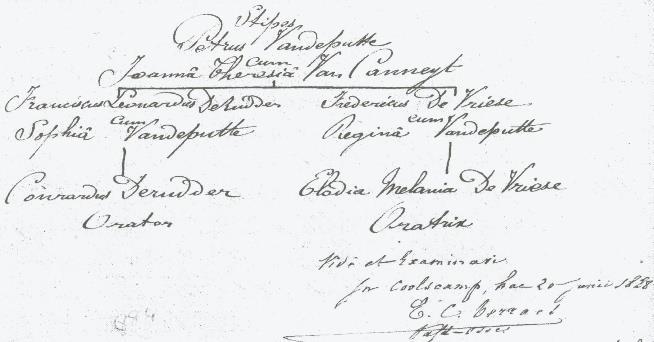 Stipes
Petrus Vandeputte
cum
Joannâ Theresiâ Van Canneyt
Franciscus Leonardus DeRudder Fredericus De Vriese
cum cum
Sophiâ Vandeputte Reginâ Vandeputte
Conrardus Derudder Elodia Melania De Vriese
Orator Oratrix
Vidi et Examinavi
in Coolscamp, hac 20 junii 1828
E. C.